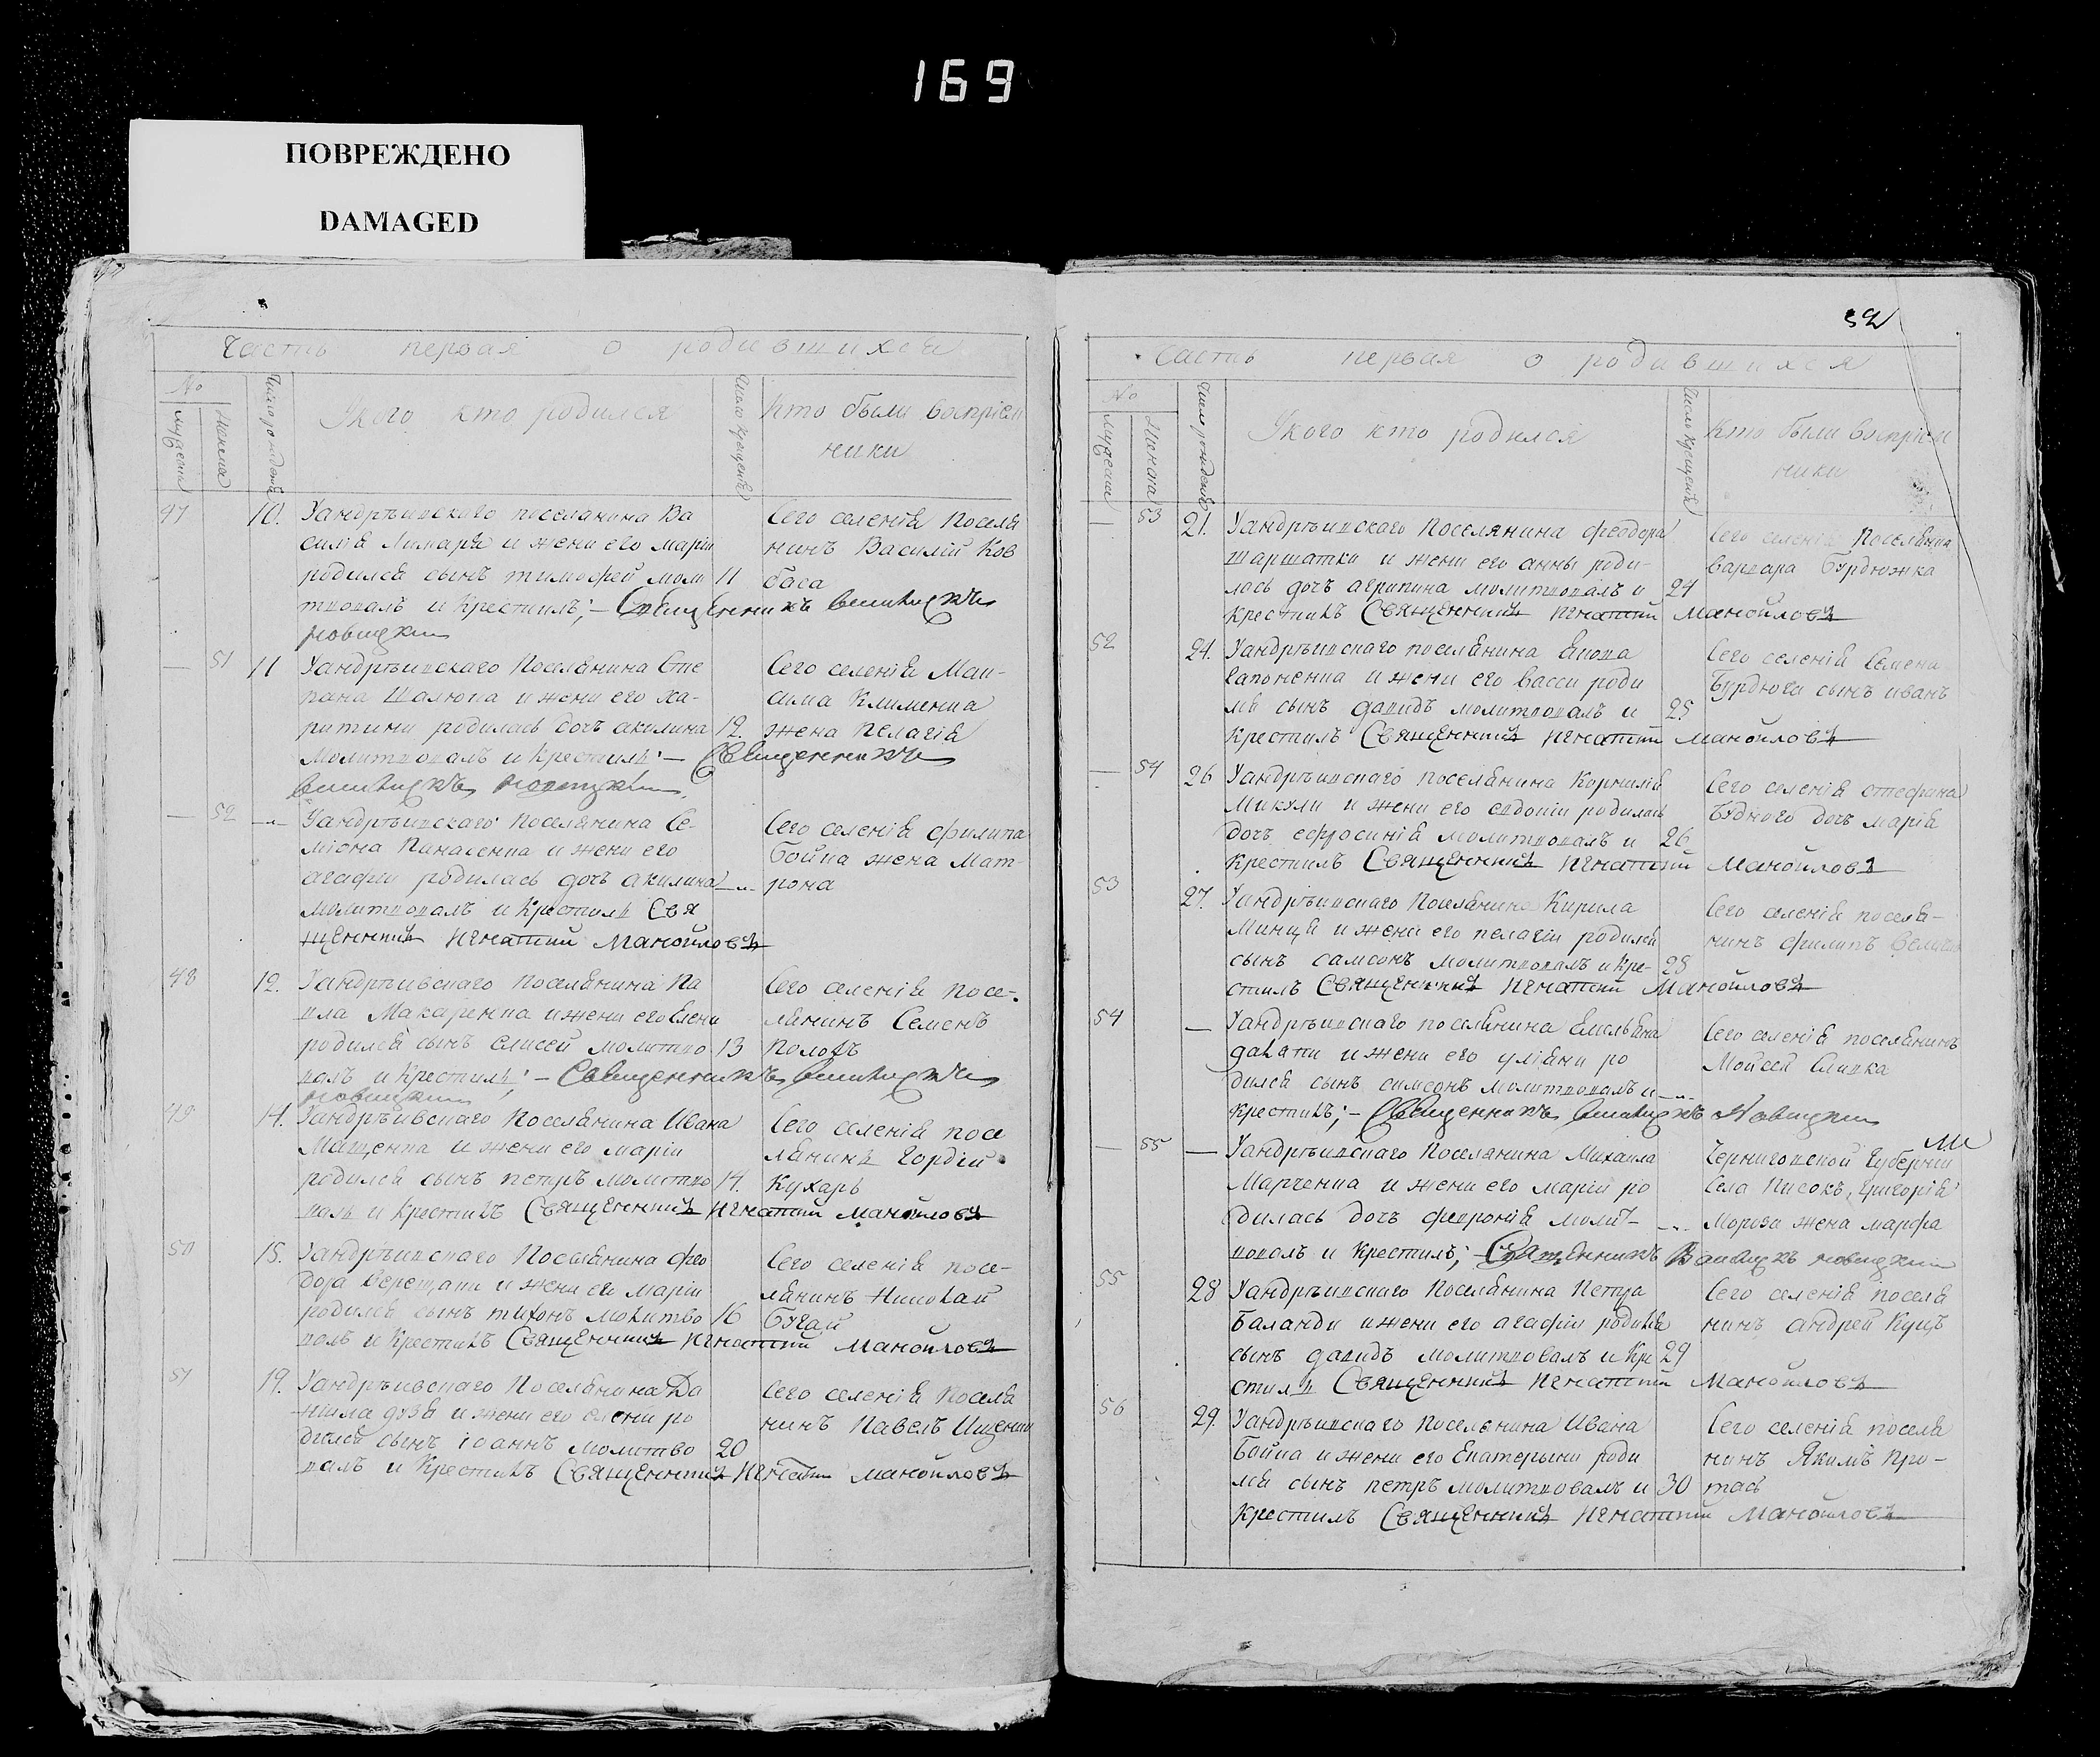 169
ПОВРЕЖДЕНО
DAMAGED
Часть первая о родившихся
No
мужеска
женска
Число рождения
У кого кто родился
Число крещения
Кто были воспрiем
ники
47 10. Уандрѣивского поселянина Ва
силiя Лимаря и жени его марiи
родился сынъ тимофей моли 11
твовалъ и Крестилъ; – Священникъ
новицкiй
Сего селенiя Посели
нинъ Василiй Ков
баса
— 51 11 Уандрѣивскаго Поселянина Сте
пана Шалюпа и жени его ха-
ритини родилась дочъ акилина 12.
Молитвовалъ и Крестилъ: – Священникъ
новицкiй
Сего селенiя Мак-
сима Клименка
жена Пелагiя
— 52 —„— Уандрѣивскаго Поселянина Се-
мiона Панасенка и жени его
агафiи родилась дочъ акилина —„—
молитвовалъ и Крестилъ Свя
щенникъ Игнатий Манойловъ
Сего селенiя филипа
Бойка жена Мат-
рона
48 12. Уандрѣивскаго Поселянина Па
вла Макаренка и жени его Елени
родился сынъ елисей молитво 13
валъ и Крестилъ; – Священникъ
новицкiй
Сего селенiя посе-
лянинъ Семенъ
49 14. Уандрѣивскаго Поселянина Ивана
Мащенка и жени его марiи
родился сынъ петръ молитво 14.
валъ и Крестилъ Священникъ Игнатий Манойловъ
Сего селенiя посе
лянинъ Гордiй
Кухаръ
50 15. Уандрѣивскаго Поселянина фео
дора Верещаки и жени его марiи
родился сынъ тихонъ молитво 16
валъ и Крестилъ Священникъ Игнатий Манойловъ
Сего селенiя посе-
лянинъ Николай
Бугай
51 19. Уандрѣивскаго Поселянина Да
нiила дузя и жени его елени ро
дился сынъ iоаннъ молитво 20
валъ и Крестилъ Священникъ Игнатий Манойловъ
Сего селенiя Поселя
нинъ Павелъ Ищенко
52
Часть первая о родившихся
No
мужеска
женска
Число рожденiя
У кого кто родился
Число крещенiя
Кто были воспрiем
ники
— 53 21. Уандрѣивскаго Поселянина феодора
шаршатки и жени его анны роди-
лась дочъ агрипина молитвовалъ и 24
Крестилъ Священникъ Игнатий Манойловъ
Сего селенiя Поселянка
варвара Бурдюжка
52 24. Уандрѣивскаго поселянина
Гапоненка и жени его васси роди
лся сынъ давидъ молитвовалъ и 25
Крестилъ Священникъ Игнатий Манойловъ
Сего селенiя Семена
Бурдюга сынъ иванъ
— 54 26 Уандрѣивскаго поселянина Корнилiя
Микули и жени его евдокiи родилась
дочъ ефросинiя молитвовалъ и 26
Крестилъ Священникъ Игнатий Манойловъ
Сего селенiя стефана
Бѣдного дочъ марiя
53 27. Уандрѣивскаго Поселянина Кирила
Минця и жени его пелагiи родился
сынъ самсонъ молитвовалъ и Кре- 28
стилъ Священникъ Игнатий Манойловъ
Сего селенiя поселя-
нинъ филипъ
54 — Уандрѣивскаго поселянина Емельяна
и жени его улiяни ро
дился сынъ самсонъ молитвовалъ и —„—
Крестилъ; – Священникъ Новицкiй
Сего селенiя поселянинъ
Мойсей Сливка
— 55 — Уандрѣивскаго Поселянина Михаила
Марченка и жени его марiи ро
дилась дочъ февронiя молит- —„—
вовалъ и Крестилъ; – Священникъ новицкiй
Черниговской Губернiи
Села Писокъ, Григорiя
Мороза жена марфа
55 28 Уандрѣивскаго Поселянина Петра
Баланди и жени его агафiи родился
сынъ давидъ молитвовалъ и Кре 29
стилъ Священникъ Игнатий Манойловъ
Сего селенiя поселя
нинъ андрей Куцъ
56 29. Уандрѣивскаго Поселянина Ивана
Бойка и жени его Екатерыни роди
лся сынъ петръ молитвовалъ и 30
Крестилъ Священникъ Игнатий Манойловъ
Сего селенiя поселя
нинъ Якимъ Про-
тасъ